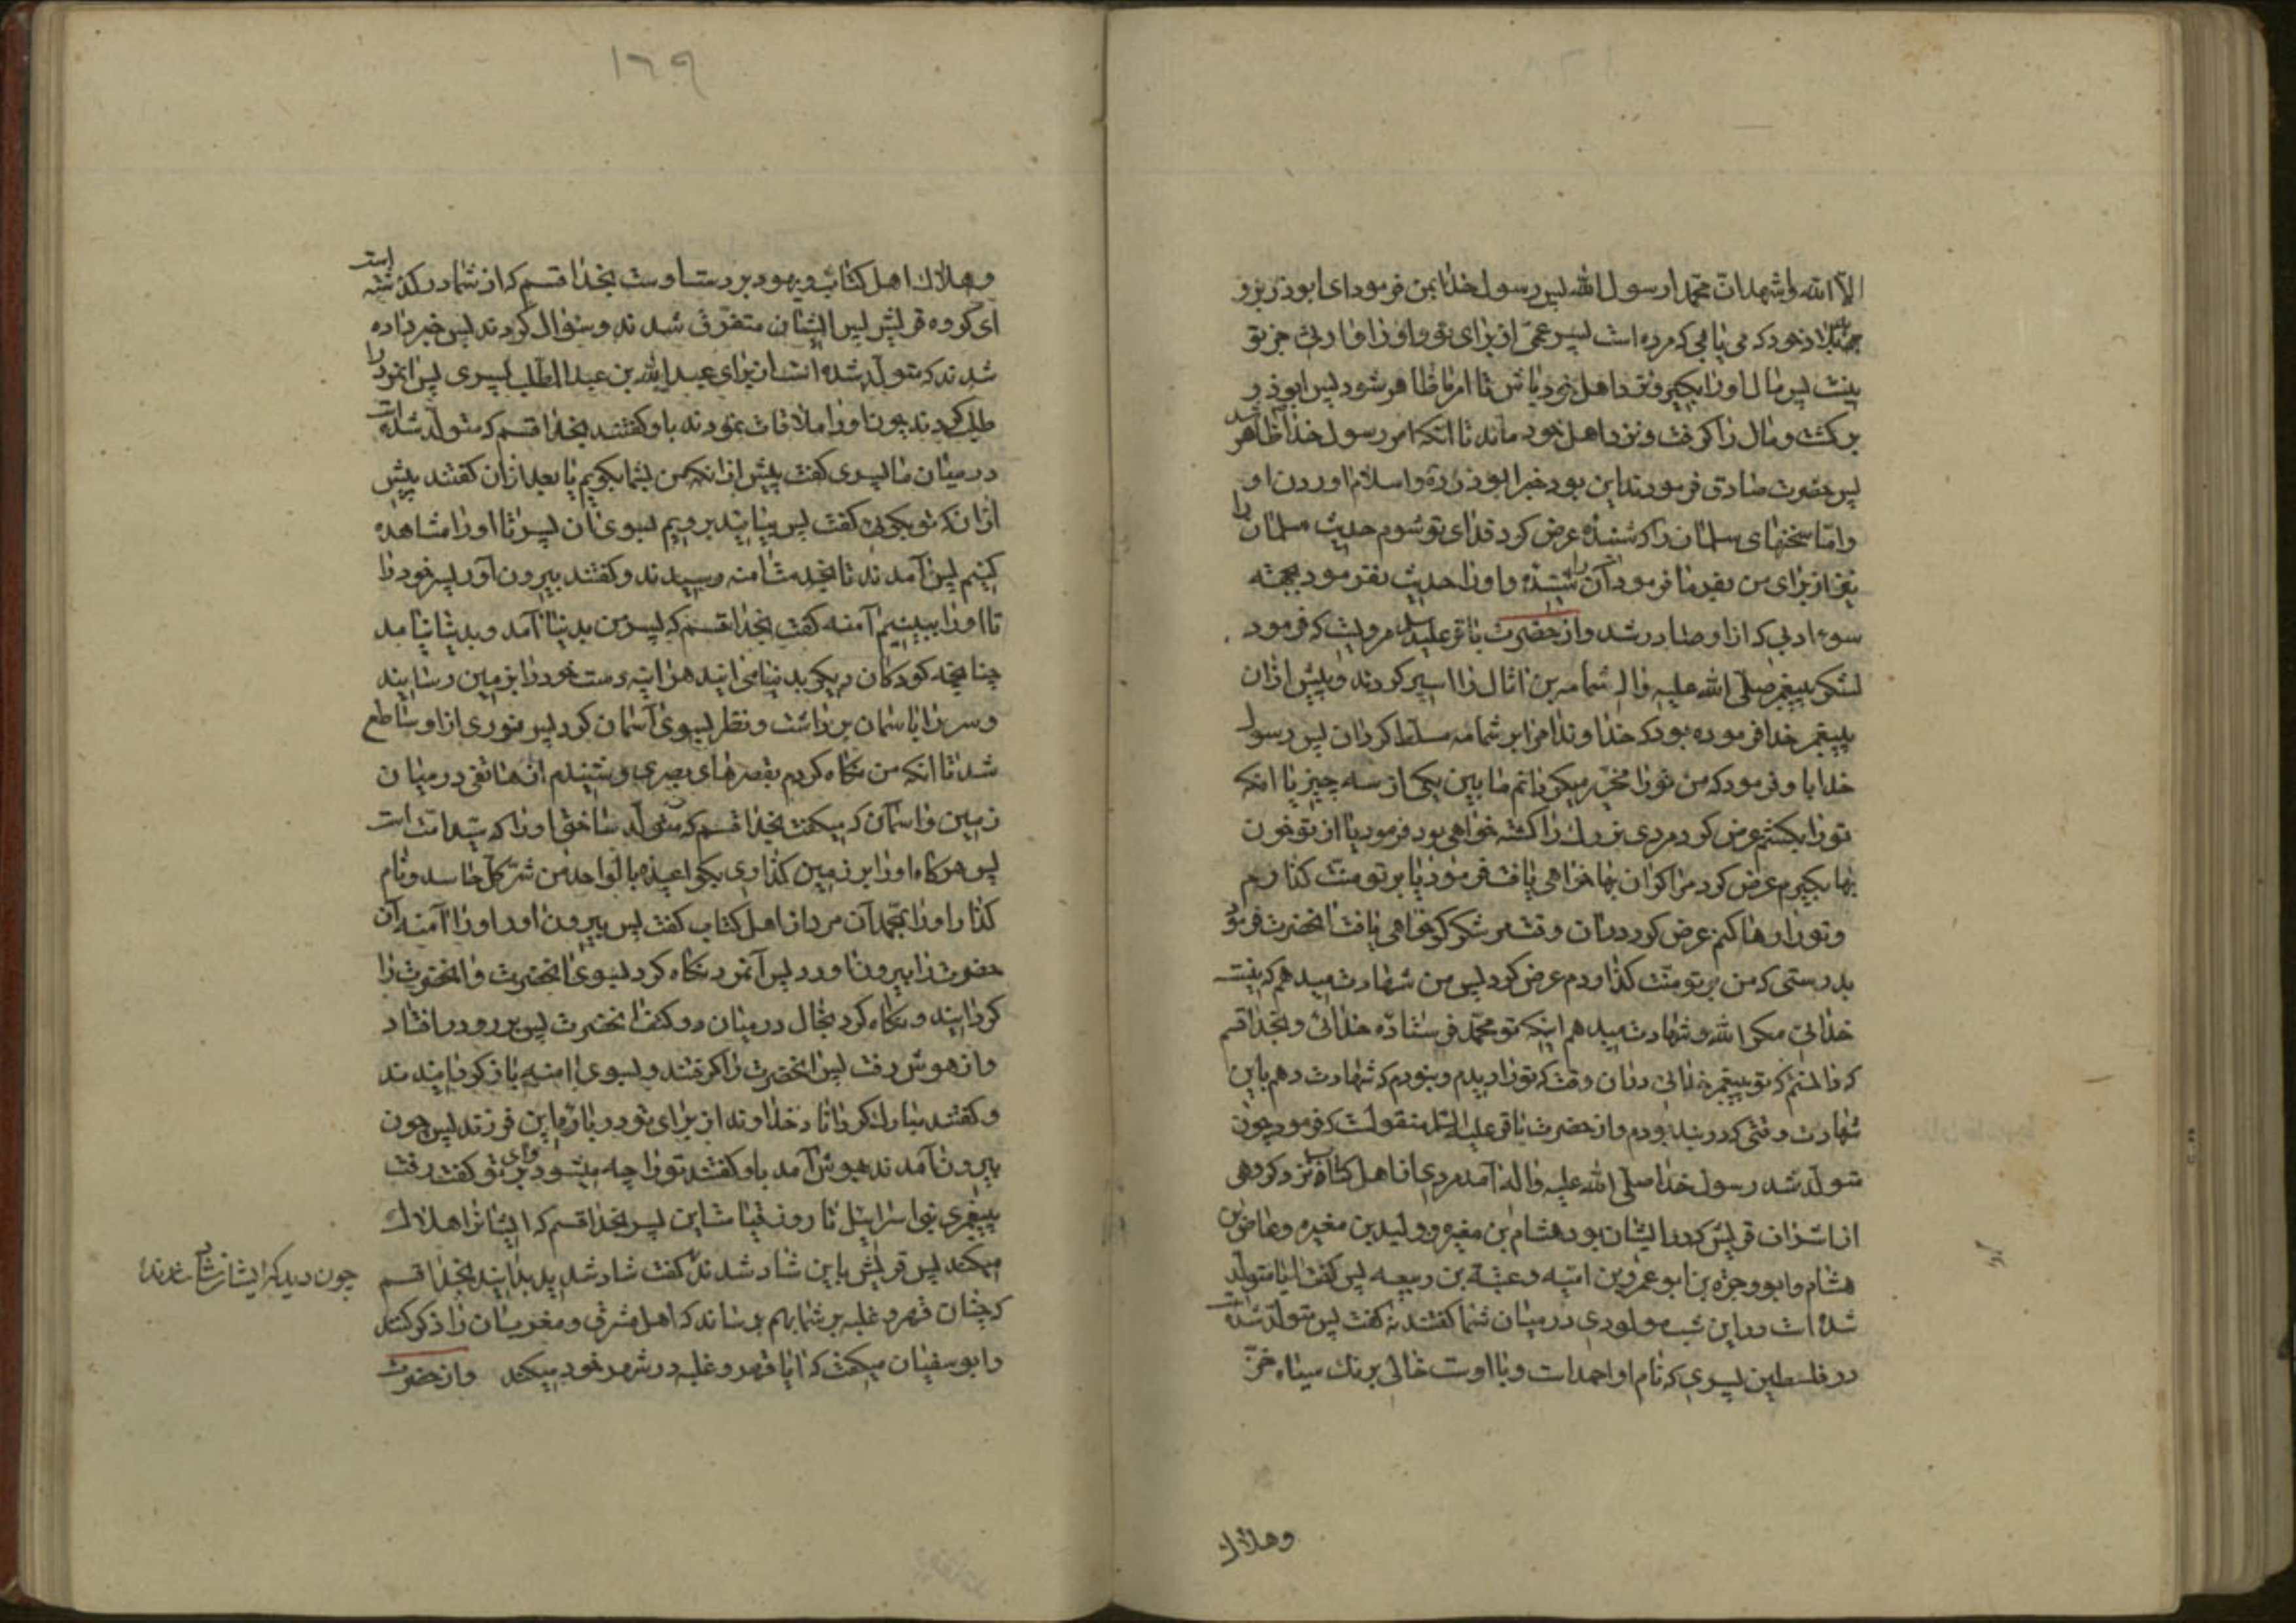 الّا الله واشهد ان محمدا رسول الله پس رسول خدا بمن فرمود ای ابوذر برو
بجانب بلاد خود که می یابی که مرده است پسر عمّی از برای تو و او را وارثی جز تو
نیست پس مال او را بگیر و نزد اهل خود باش تا امر ما ظاهر شود پس ابوذر
برگشت و مال را گرفت و نزد اهل خود ماند تا آنکه امر رسول خدا ظاهر شد
پس حضرت صادق فرمودند این بود خبر ابوذر و اسلام آوردن او
وامّا سخنهای سلمان را که شنیدهٔ عرض کرد فدای تو شوم حدیث سلمان را
نیز از برای من بفرما فرمود آن را شنیدهٔ و او را حدیث نفرمود بجهة
سوء ادبی که از او صادر شد واز حضرت باقر علیه السلام مرویست که فرمود
لشکر پیغمبر صلّی الله علیه واله ثمامه بن اثال را اسیر کردند و پیش ازان
پیغمبر خدا فرموده بود که خداوندا مرا بر ثمامه مسلط گردان پس رسول
خدا باو فرمود که من تو را مخیّر میگردانم ما بین یکی از سه چیز یا انکه
تو را بکشم عرض کرد مردی بزرگ را کشته خواهی بود فرمود یا از تو خون
بها بگیرم عرض کرد مرا گران بها خواهی یافت فرمود یا بر تو منت گذارم
و تو را رها کنم عرض کرد دران وقت مرا شکر گو خواهی یافت انحضرت فرمود
بدرستی که من بر تو منّت گذاردم عرض کرد پس من شهادت میدهم که نیست
خدائی مگر الله و شهادت میدهم اینکه تو محمّد فرستادهٔ خدائی و بخدا قسم
که دانستم که تو پیغمبر خدائی دران وقت که تو را دیدم و نبودم که شهادت دهم باین
شهادت وقتی که در بند بودم واز حضرت باقر علیه السلام منقولست که فرمود چون
متولّد شد رسول خدا صلّی الله علیه واله آمد مردی از اهل کتاب نزد گروهی
از اشراف قریش که در ایشان بود هشام بن مغیره و ولید بن مغیره و عاص بن
هشام و ابو وجزه بن ابو عمرو بن امیّه و عتبة بن ربیعه پس گفت ایا متولّد
شده است در این شب مولودی در میان شما گفتند نه گفت پس متولّد شده است
در فلسطین پسری که نام او احمد است و با اوست خالی برنگ سیاه خزّ
وهلاک
١٦٩
وهلاک اهل کتاب و یهود بر دست اوست بخدا قسم که از شما در گذشته است
ای گروه قریش پس ایشان متفرّق شدند و سؤال کردند پس خبر داده
شدند که متولّد شده است از برای عبد الله بن عبد المطّلب پسری پس انمرد را
طلب کردند چون او را ملاقات نمودند باو گفتند بخدا قسم که متولّد شده است
در میان ما پسری گفت پیش از انکه من بشما بگویم یا بعد ازان گفتند پیش
ازانکه تو بگوئی گفت پس بیائید برویم بسوی ان پسر تا او را مشاهده
کنیم پس آمدند تا بخدمت آمنه رسیدند و گفتند بیرون آور پسر خود را
تا او را ببینیم آمنه گفت بخدا قسم که پسر من بدنیا آمد و بدنیا نیامد
چنانچه کودکان دیگر بدنیا می ایند هر اینه دست خود را بزمین رسانید
و سر را باسمان برداشت و نظر بسوی آسمان کرد پس نوری از او ساطع
شد تا انکه من نگاه کردم بقصرهای بصری و شنیدم از هاتفی در میان
زمین و اسمان که میگفت بخدا قسم که متولّد ساختی او را که سیّد امّت است
پس هرگاه او را بر زمین گذاری بگو اعیذه بالواحد من شرّ کلّ حاسد و نام
گذار او را محمّد آن مرد از اهل کتاب گفت پس بیرون اور او را آمنه آن
حضرت را بیرون اورد پس آنمرد نگاه کرد بسوی انحضرت و انحضرت را
گردانید و نگاه کرد بخال در میان دو کتف انحضرت پس برو در افتاد
و از هوش رفت پس انحضرت را گرفتند و بسوی امنه باز گردانیدند
و گفتند مبارک گرداناد خداوند از برای تو در بارهٔ این فرزند پس چون
بیرون آمدند بهوش آمد باو گفتند تو را چه میشود وای بر تو گفت رفت
پیغمبری بنی اسرائیل تا روز قیامت این پسر بخدا قسم که ایشان را هلاک
میکند پس قریش باین شاد شدند گفت شاد شدید بدانید بخدا قسم
چون دید که ایشان شاد شدند
که چنان قهر و غلبه بر شما بهم برساند که اهل مشرق و مغرب ان را ذکر کنند
و ابو سفیان میگفت که ایا قهر و غلبه در شهر خود میکند واز حضرت